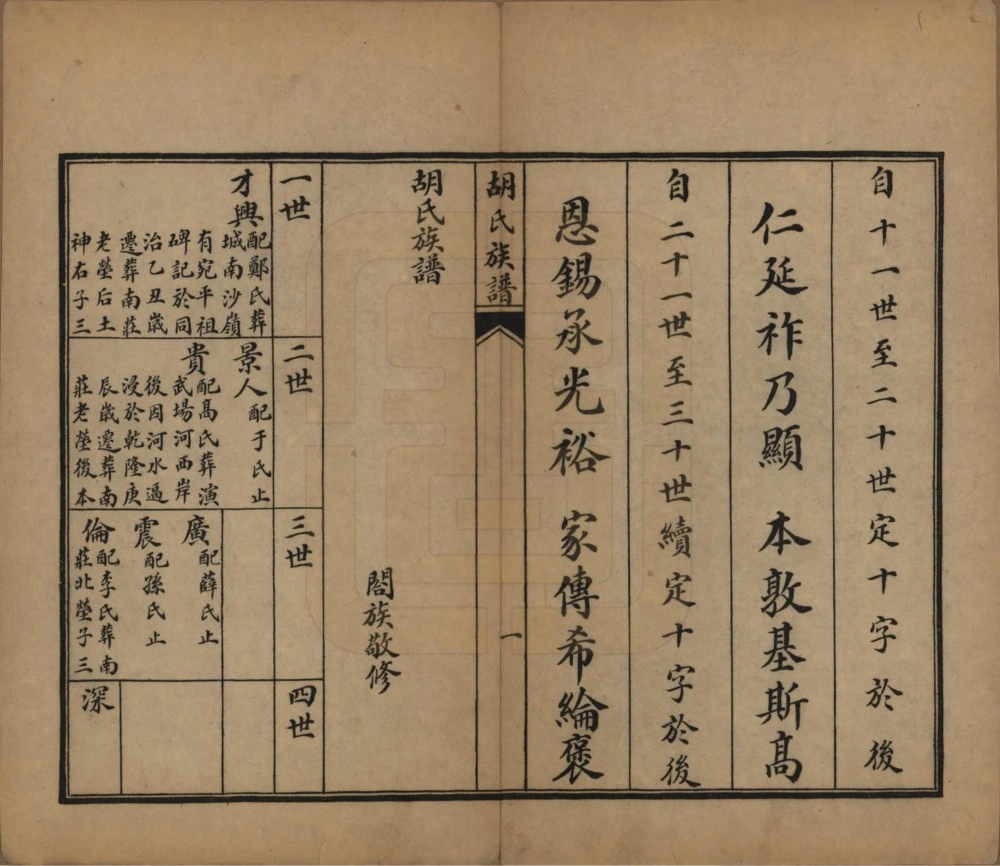 自十一世至二十世定十字於後
仁延祚乃顯 本敦基斯高
自二十一世至三十世續定十字於後
恩錫承光裕 家傳希綸褒
胡氏族譜
一
胡氏族譜
閤族敬修
一世
才興
配鄭氏葬
城南沙嶺
有宛平祖
碑記於同
治乙丑歲
遷葬南莊
老塋后土
神右子三
二世
景人
配于氏止
貴
配高氏葬演
武場河西岸
後因河水逼
浸於乾隆庚
辰歲遷葬南
莊老塋後本
三世
廣
配薛氏止
震
配孫氏止
倫
配李氏葬南
莊北塋子三
四世
深